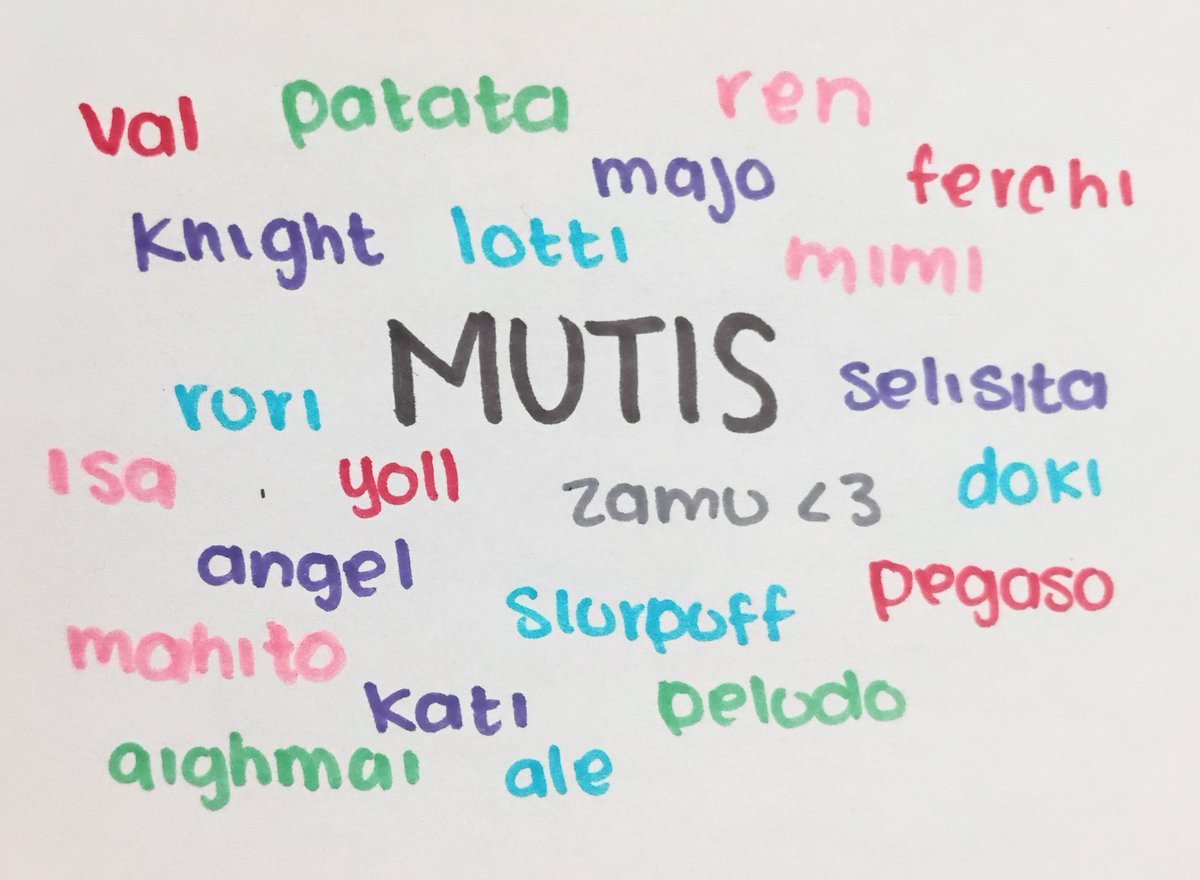 val patata ren
majo ferchi
knight lotti mimi
MUTIS
rori selisita
isa yoll zamu <3 doki
angel pegaso
slurpuff
mahito
kati peludo
aighmai ale